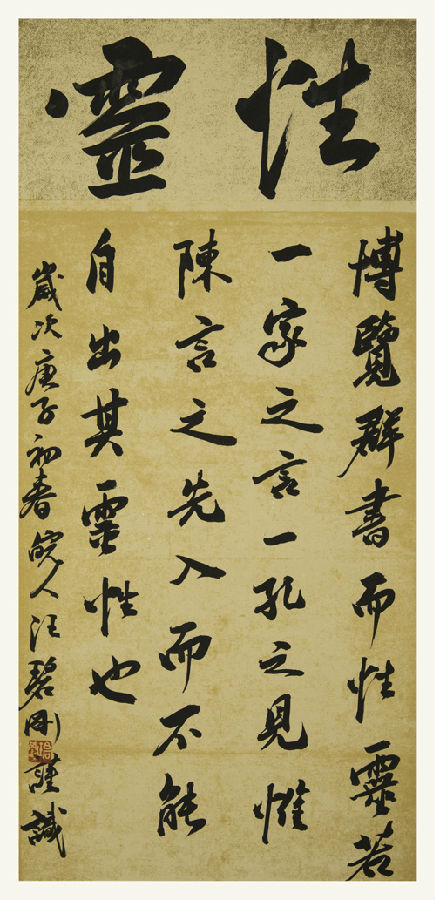 性靈
博覽群書而性靈若
一家之言一孔之見懼
陳言之先入而不能
自出其靈性也
歲次庚子初春皖人汪碧剛謹識